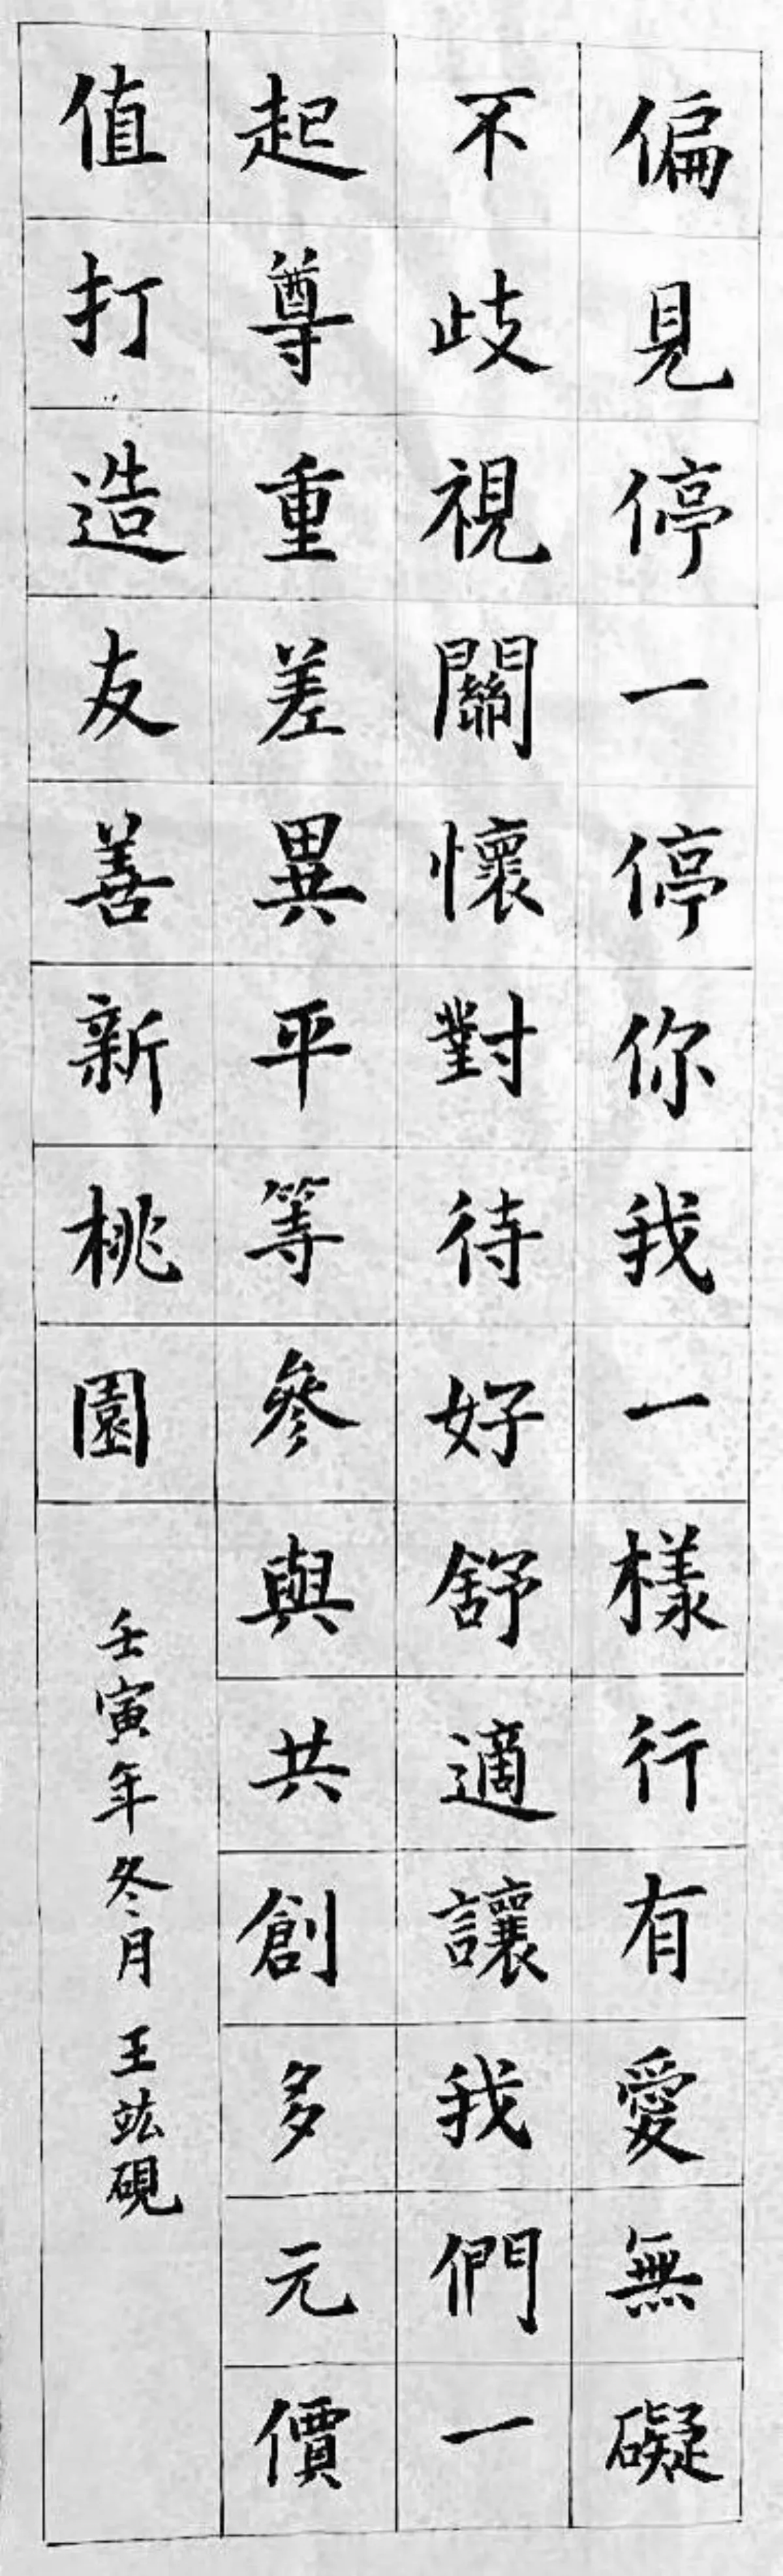 偏見停一停你我一樣行有愛無礙
不歧視關懷對待好舒適讓我們一
起尊重差異平等參與共創多元價
值打造友善新桃園
壬寅年冬月王竑硯